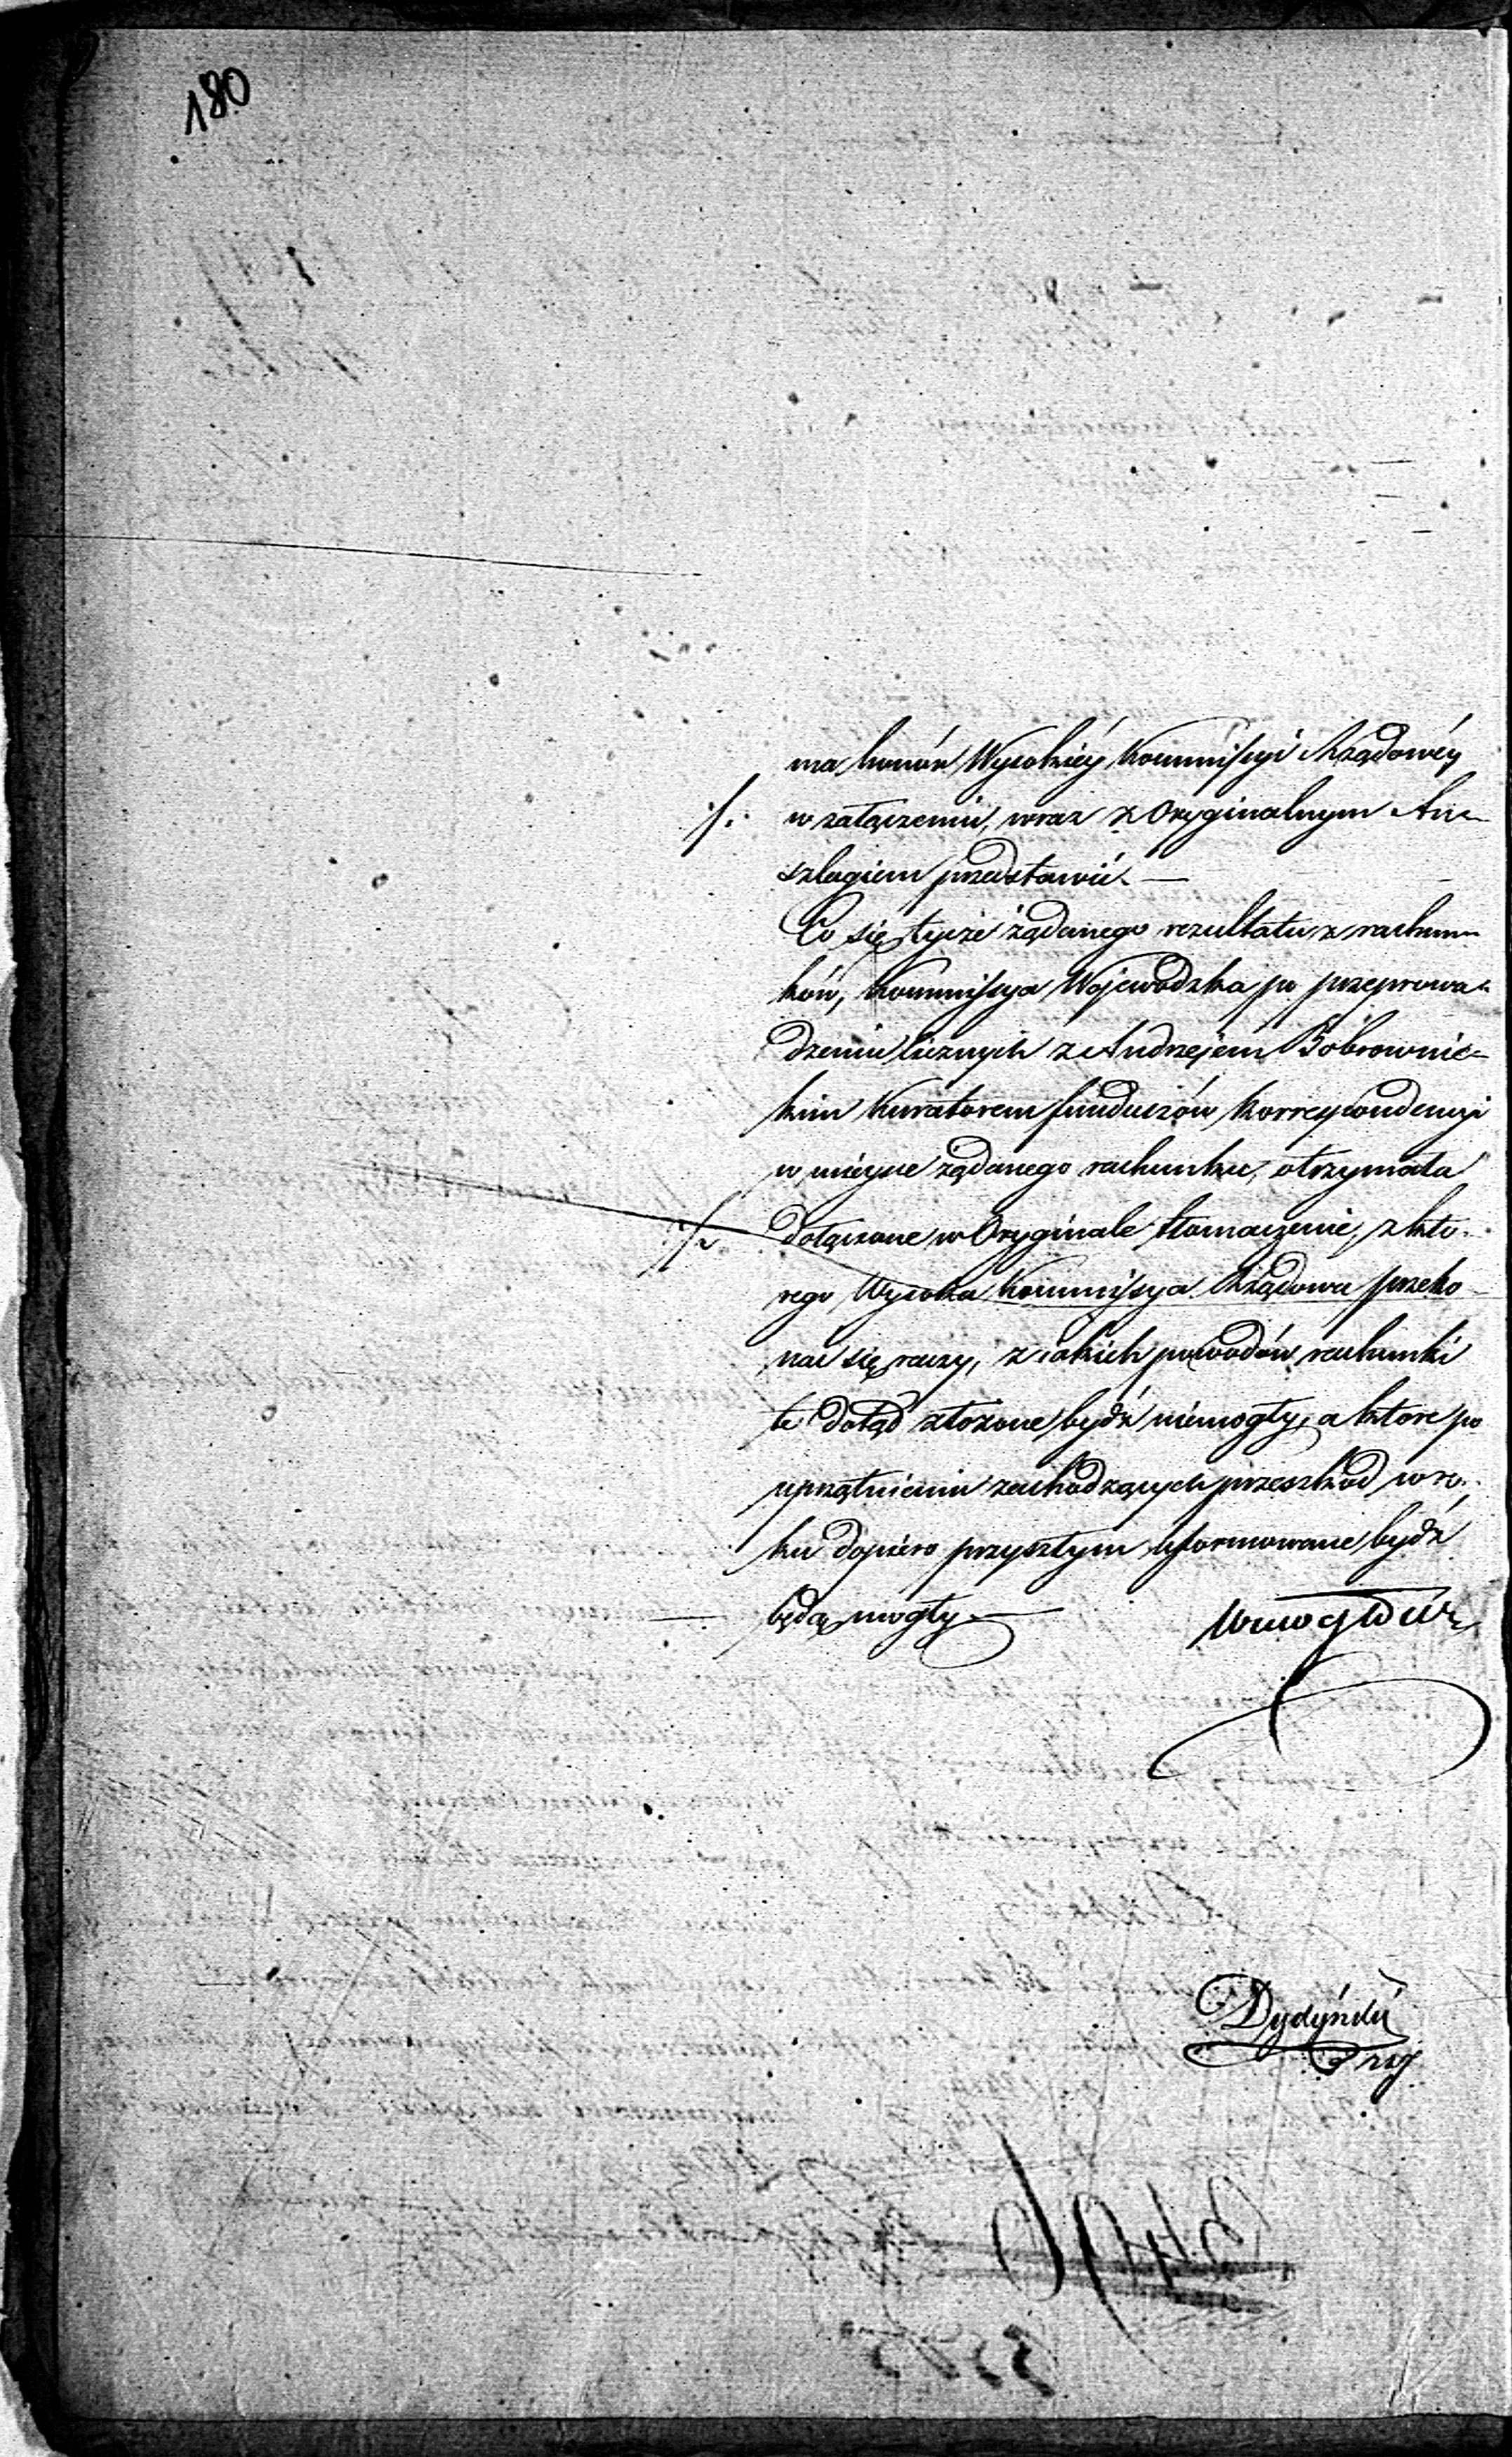 180
ma honór Wysokiéy Kommissyi Rządowéy
./. w załączeniu, wraz z Oryginalnym An-
szlagiem przedstawić.—
Co się tycze żądanego rezultatu z rachun-
ków, Kommissya Wojewodzka po przeprowa-
dzeniu licznych z Andrzejem Bobrownic-
kim Kuratorem funduszów korrespondencyi
w mieysce żądanego rachunku, otrzymała
./. dołączone w Oryginale tłomaczenie, z któ-
rego Wysoka Kommissya Rządowa przeko-
nać się raczy, z jakich powodów rachunki
te dotąd złożone bydź niemogły, a które po
uprzątnieniu zachodzących przeszkod w ro-
ku dopiero przyszłym uformowane bydź
będą mogły.—